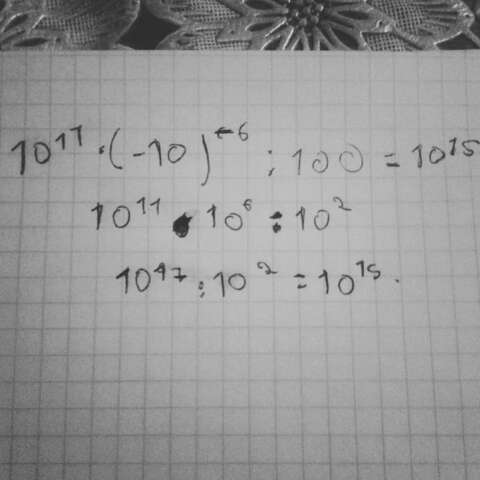 10¹¹·(-10)⁻⁶:100=10¹⁵
10¹¹·10⁶:10²
10¹⁷:10²=10¹⁵.